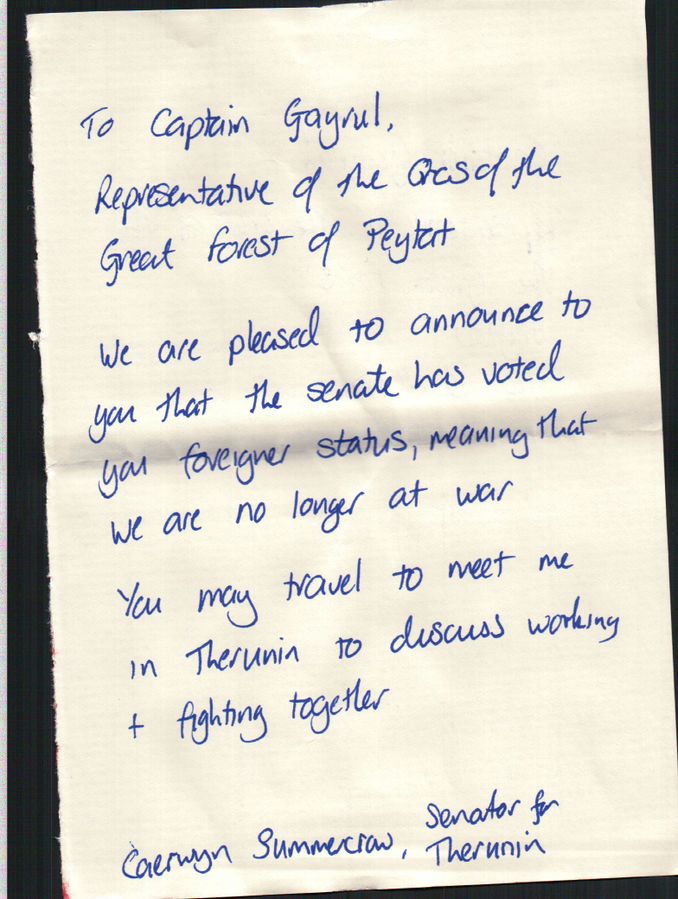 To Captain Gayrul,
Representative of the Orcs of the
Great Forest of Peytaht
We are pleased to announce to
you that the senate has voted
you foreigner status, meaning that
we are no longer at war
You may travel to meet me
in Therunin to discuss working
+ fighting together
Senator for
Caerwyn Summercraw, Therunin